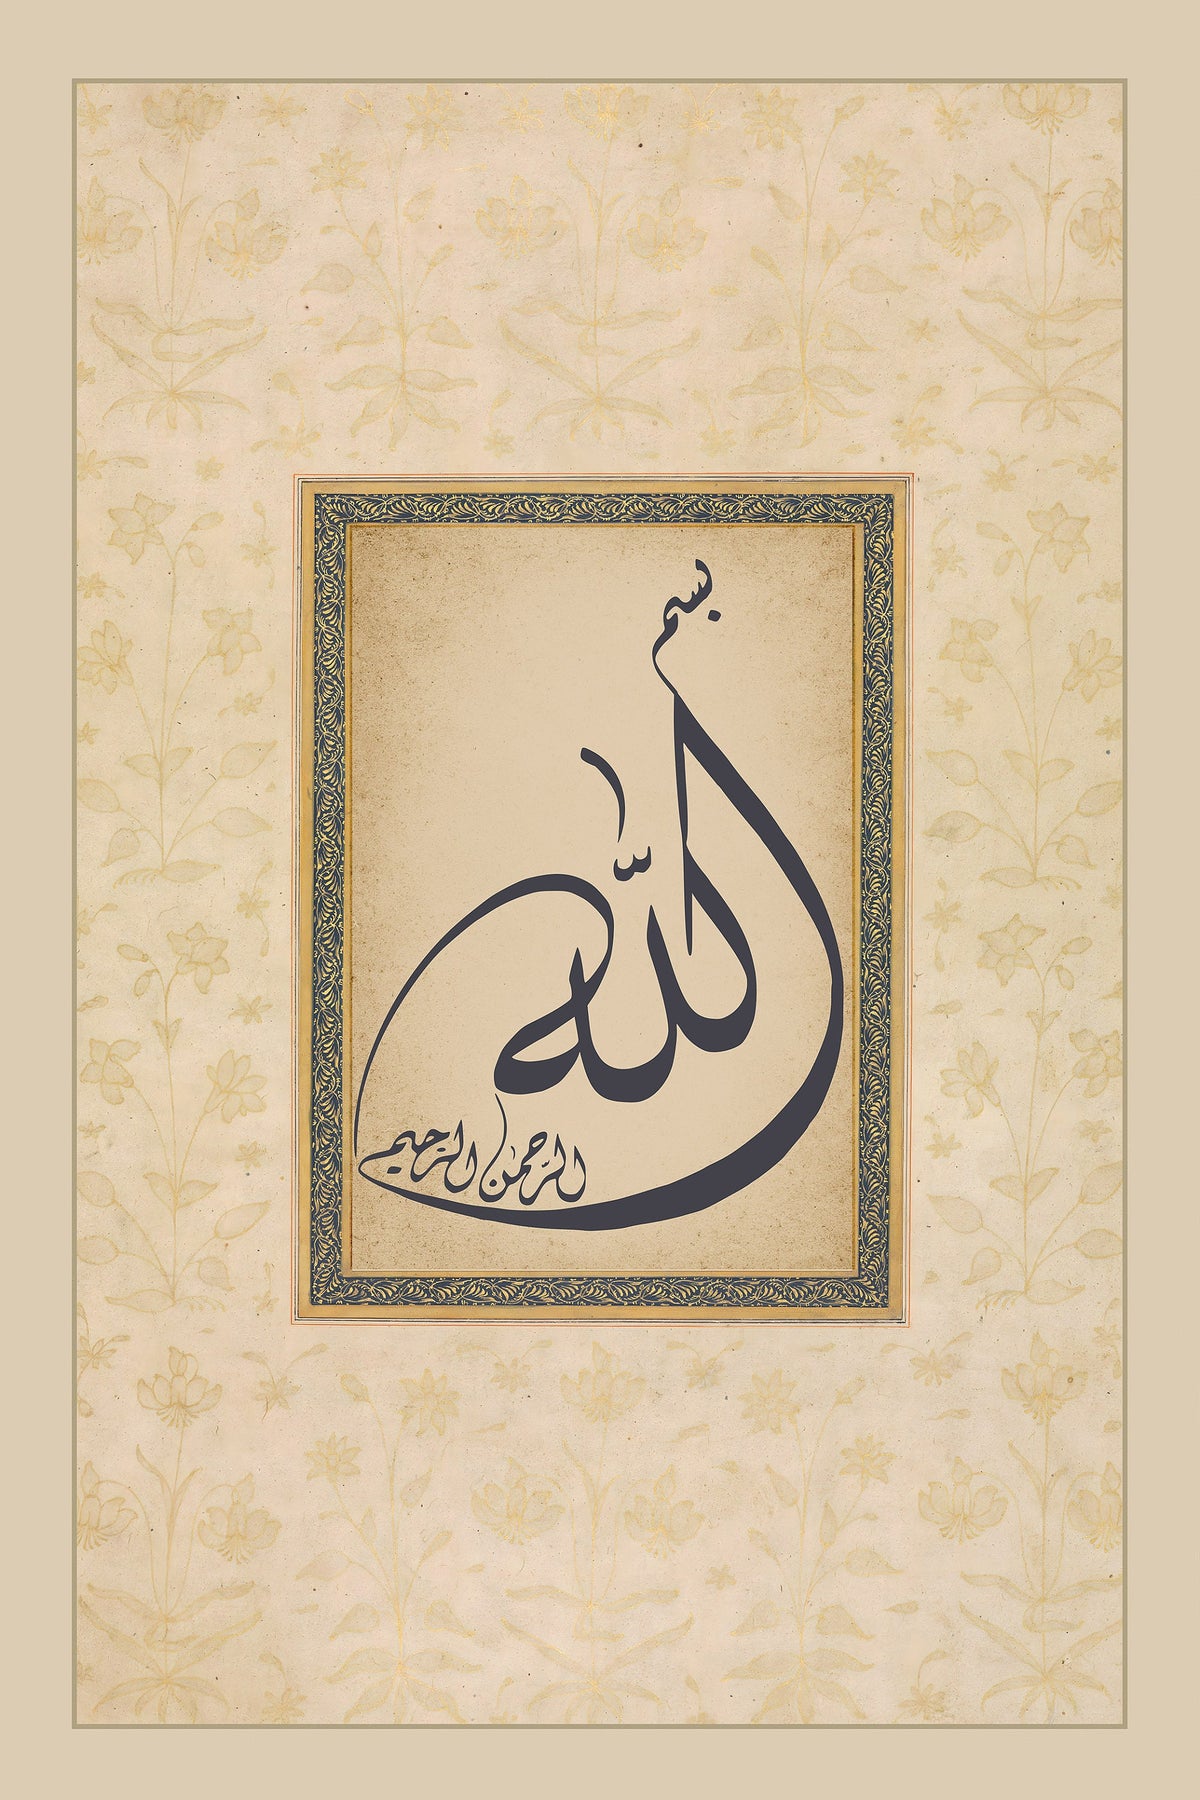 بسم
اللّٰه
الرّحمٰن الرّحيم